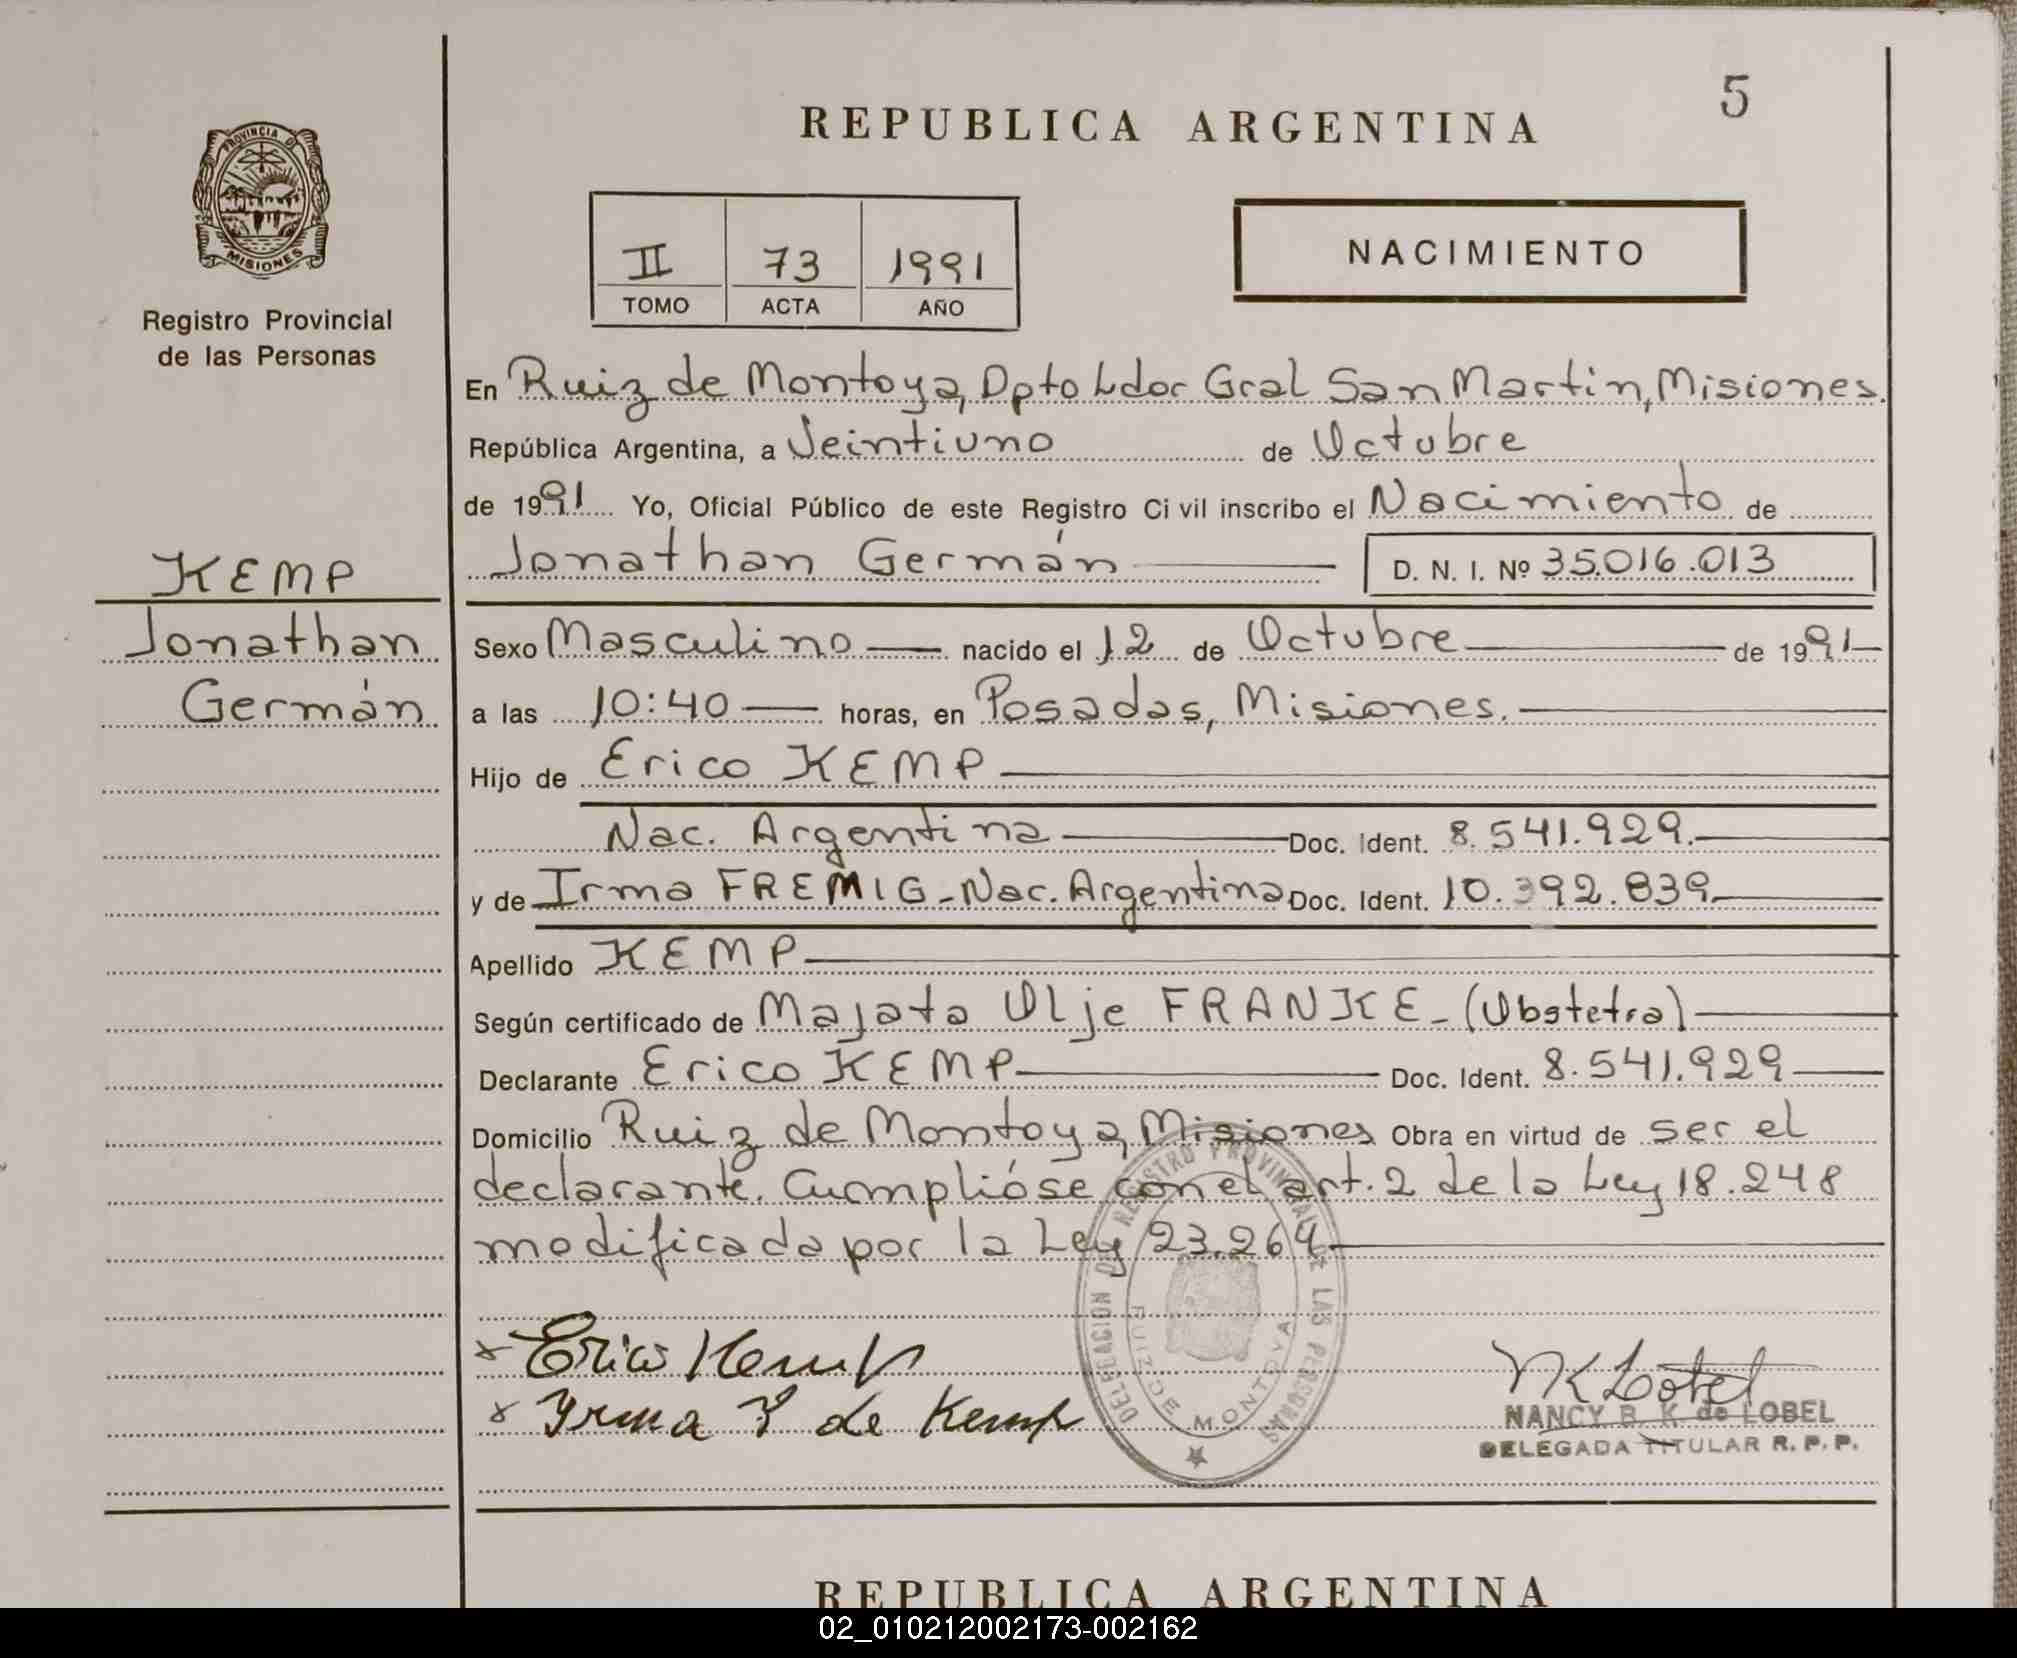 5
REPUBLICA ARGENTINA
PROVINCIA DE
MISIONES
Registro Provincial
de las Personas
II 73 1991
TOMO ACTA AÑO
NACIMIENTO
En Ruiz de Montoya, Dpto Ldor Gral San Martin, Misiones.
República Argentina, a Veintiuno de Octubre
de 1991 Yo, Oficial Público de este Registro Ci vil inscribo el Nacimiento de
Jonathan Germán D. N. I. Nº 35.016.013
KEMP
Jonathan
Germán
Sexo Masculino nacido el 12 de Octubre de 1991
a las 10:40 horas, en Posadas, Misiones.
Hijo de Erico KEMP
Nac. Argentina Doc. Ident. 8.541.929.
y de Irma FREMIG - Nac. Argentina Doc. Ident. 10.392.839
Apellido KEMP
Según certificado de Majata Olje FRANKE - (Obstetra)
Declarante Erico KEMP Doc. Ident. 8.541.929
Domicilio Ruiz de Montoya, Misiones Obra en virtud de ser el
declarante. Cumplióse con el art. 2 de la Ley 18.248
modificada por la Ley 23.264
DELEGACION DEL REGISTRO PROVINCIAL DE LAS PERSONAS
RUIZ DE MONTOYA
Erico Kemp
Irma F de Kemp
NK Lobel
NANCY B. K. de LOBEL
DELEGADA TITULAR R. P. P.
REPUBLICA ARGENTINA
02_010212002173-002162